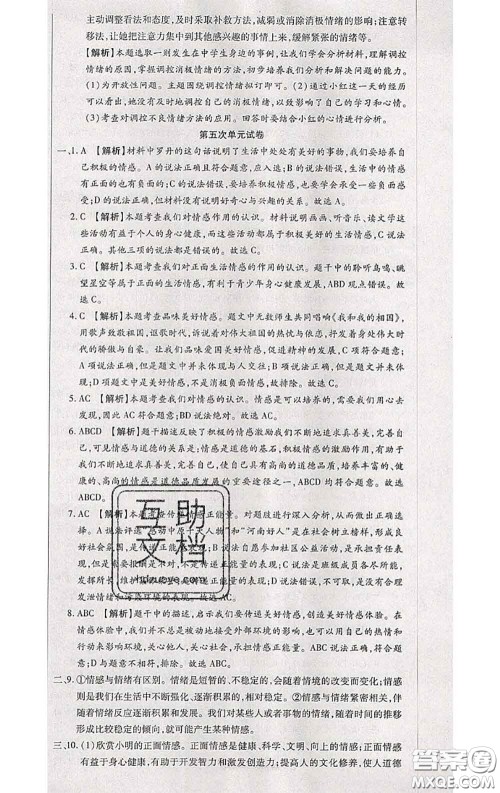 主动调整看法和态度,及时采取补救方法,减弱或消除消极情绪的影响;注意转
移法,让她把注意力集中到其他感兴趣的事情上来,缓解紧张的情绪等。
【解析】本题选取一则发生在中学生身边的事例,让我们学会分析材料,理解调控
情绪的原因,掌握调控消极情绪的方法,初步培养我们分析和解决问题的能力。
(1)为开放性问题。主题回答积极向上即可。(2)通过小红这一天的经历可以
看出她没有及时地调控自己的消极情绪,以致影响了自己的学习和心情。
(3)考查对调控不良情绪方法的掌握。我们应结合小红的心情进行分析。
第五次单元试卷
一、1. A 【解析】材料中罗丹的这句话说明了生活中处处有美好的事物,我们要培养自
己积极的情感。A 说法正确且符合题意,应入选;B 说法错误,生活中的情感
有正面的也有负面的;C 说法错误,我们要培养积极情感,但也要体验负面情
感;D 说法正确,但材料没有说明好奇心与兴趣的关系。故选 A。
2. C 【解析】本题考查我们对情感作用的认识。材料说明画画、听音乐、读文学这
些活动有益于个人的身心健康,而这些活动都属于积极美好的生活情感。C
说法正确。其他三项的说法都是错误的。故选 C。
3. C 【解析】本题考查我们对正面生活情感的作用的认识。题干中的聆听鸟鸣、眺
望星空等都属于正面的生活情感,有利于青少年身心健康发展,ABD 观点错误。故
选 C。
4. C 【解析】本题考查品味美好情感。题文中无数师生共同唱响《我和我的祖国》,
用歌声致敬祖国,倾诉着对伟大祖国的热忱与依恋,抒发着身处伟大时代
的骄傲与自豪。让我们品味爱国美好情感,促进精神发展,C 符合题意;A 说
法正确,但在题文中并未体现与人交往;B 说法正确,但是题文中并未体现阅
读;D 项题文中是美好情感,不是负面情感,故排除。故选 C。
5. AC 【解析】本题考查我们对情感的认识。情感是可以培养的,需要我们用心去
发现,因此 AC 符合题意;BD 说法绝对。故选 AC。
6. ABCD 【解析】题干描述反映了积极的情感激励我们不断地追求真善美,完善自
己,可见情感与道德的关系是:情感是道德的基石,积极情感的激励作用,有助于
我们不断地追求真善美,完善自己,使我们具有高尚的道德品质,培养丰富的、健
康的、高尚的情感是道德品质发展的重要途径之一,ABCD 均符合题意。故选
ABCD。
7. AC 【解析】本题考查传递情感正能量。对题肢进行深入分析,从而做出正确选
择。A 说法评选“感动中原十大人物”和“河南好人”是在社会树立榜样,形成良
好社会氛围,是传递情感正能量的表现;B 说法自愿参加社区公益活动,是承担责任
表现,但是索要报酬是不对的,不可取;C 说法正确,承担家庭责任是班级成员各尽所能,
发挥所长,维护班集体是传递正能量的表现;D 说法错误,不可取,是不合理
发泄情绪和污染环境的表现。故选 AC。
8. ABC 【解析】题干中的描述,启示我们要传递美好情感,创造美好情感体验。在
传递情感中不断接受外部环境的影响,也可以用自己的热情和行动来影响
外部环境,关心他人,关心社会,承担关爱社会的责任,故 ABC 说法正确且符合
题意;D 与题意不相符,排除。故选 ABC。
二、9. ①情感与情绪有区别。情绪是短暂的、不稳定的,会随着情境的改变而变化;情感
则是我们在生活中不断强化、逐渐积累的,相对稳定。②情感与情绪紧密相关,伴
随着情绪反应逐渐积累和发展。例如对某些人或者事物的情绪,随着时间的推移
形成比较稳定的倾向,就可能产生某种情感。
三、10. (1)欣赏小明的正面情感。正面情感是健康、科学、文明、向上的情感;正面情感
有益于身心健康,有助于开发智力和激发创造力;提高人的文化修养,使人道德
互助文档
答案圈
MXQE.COM